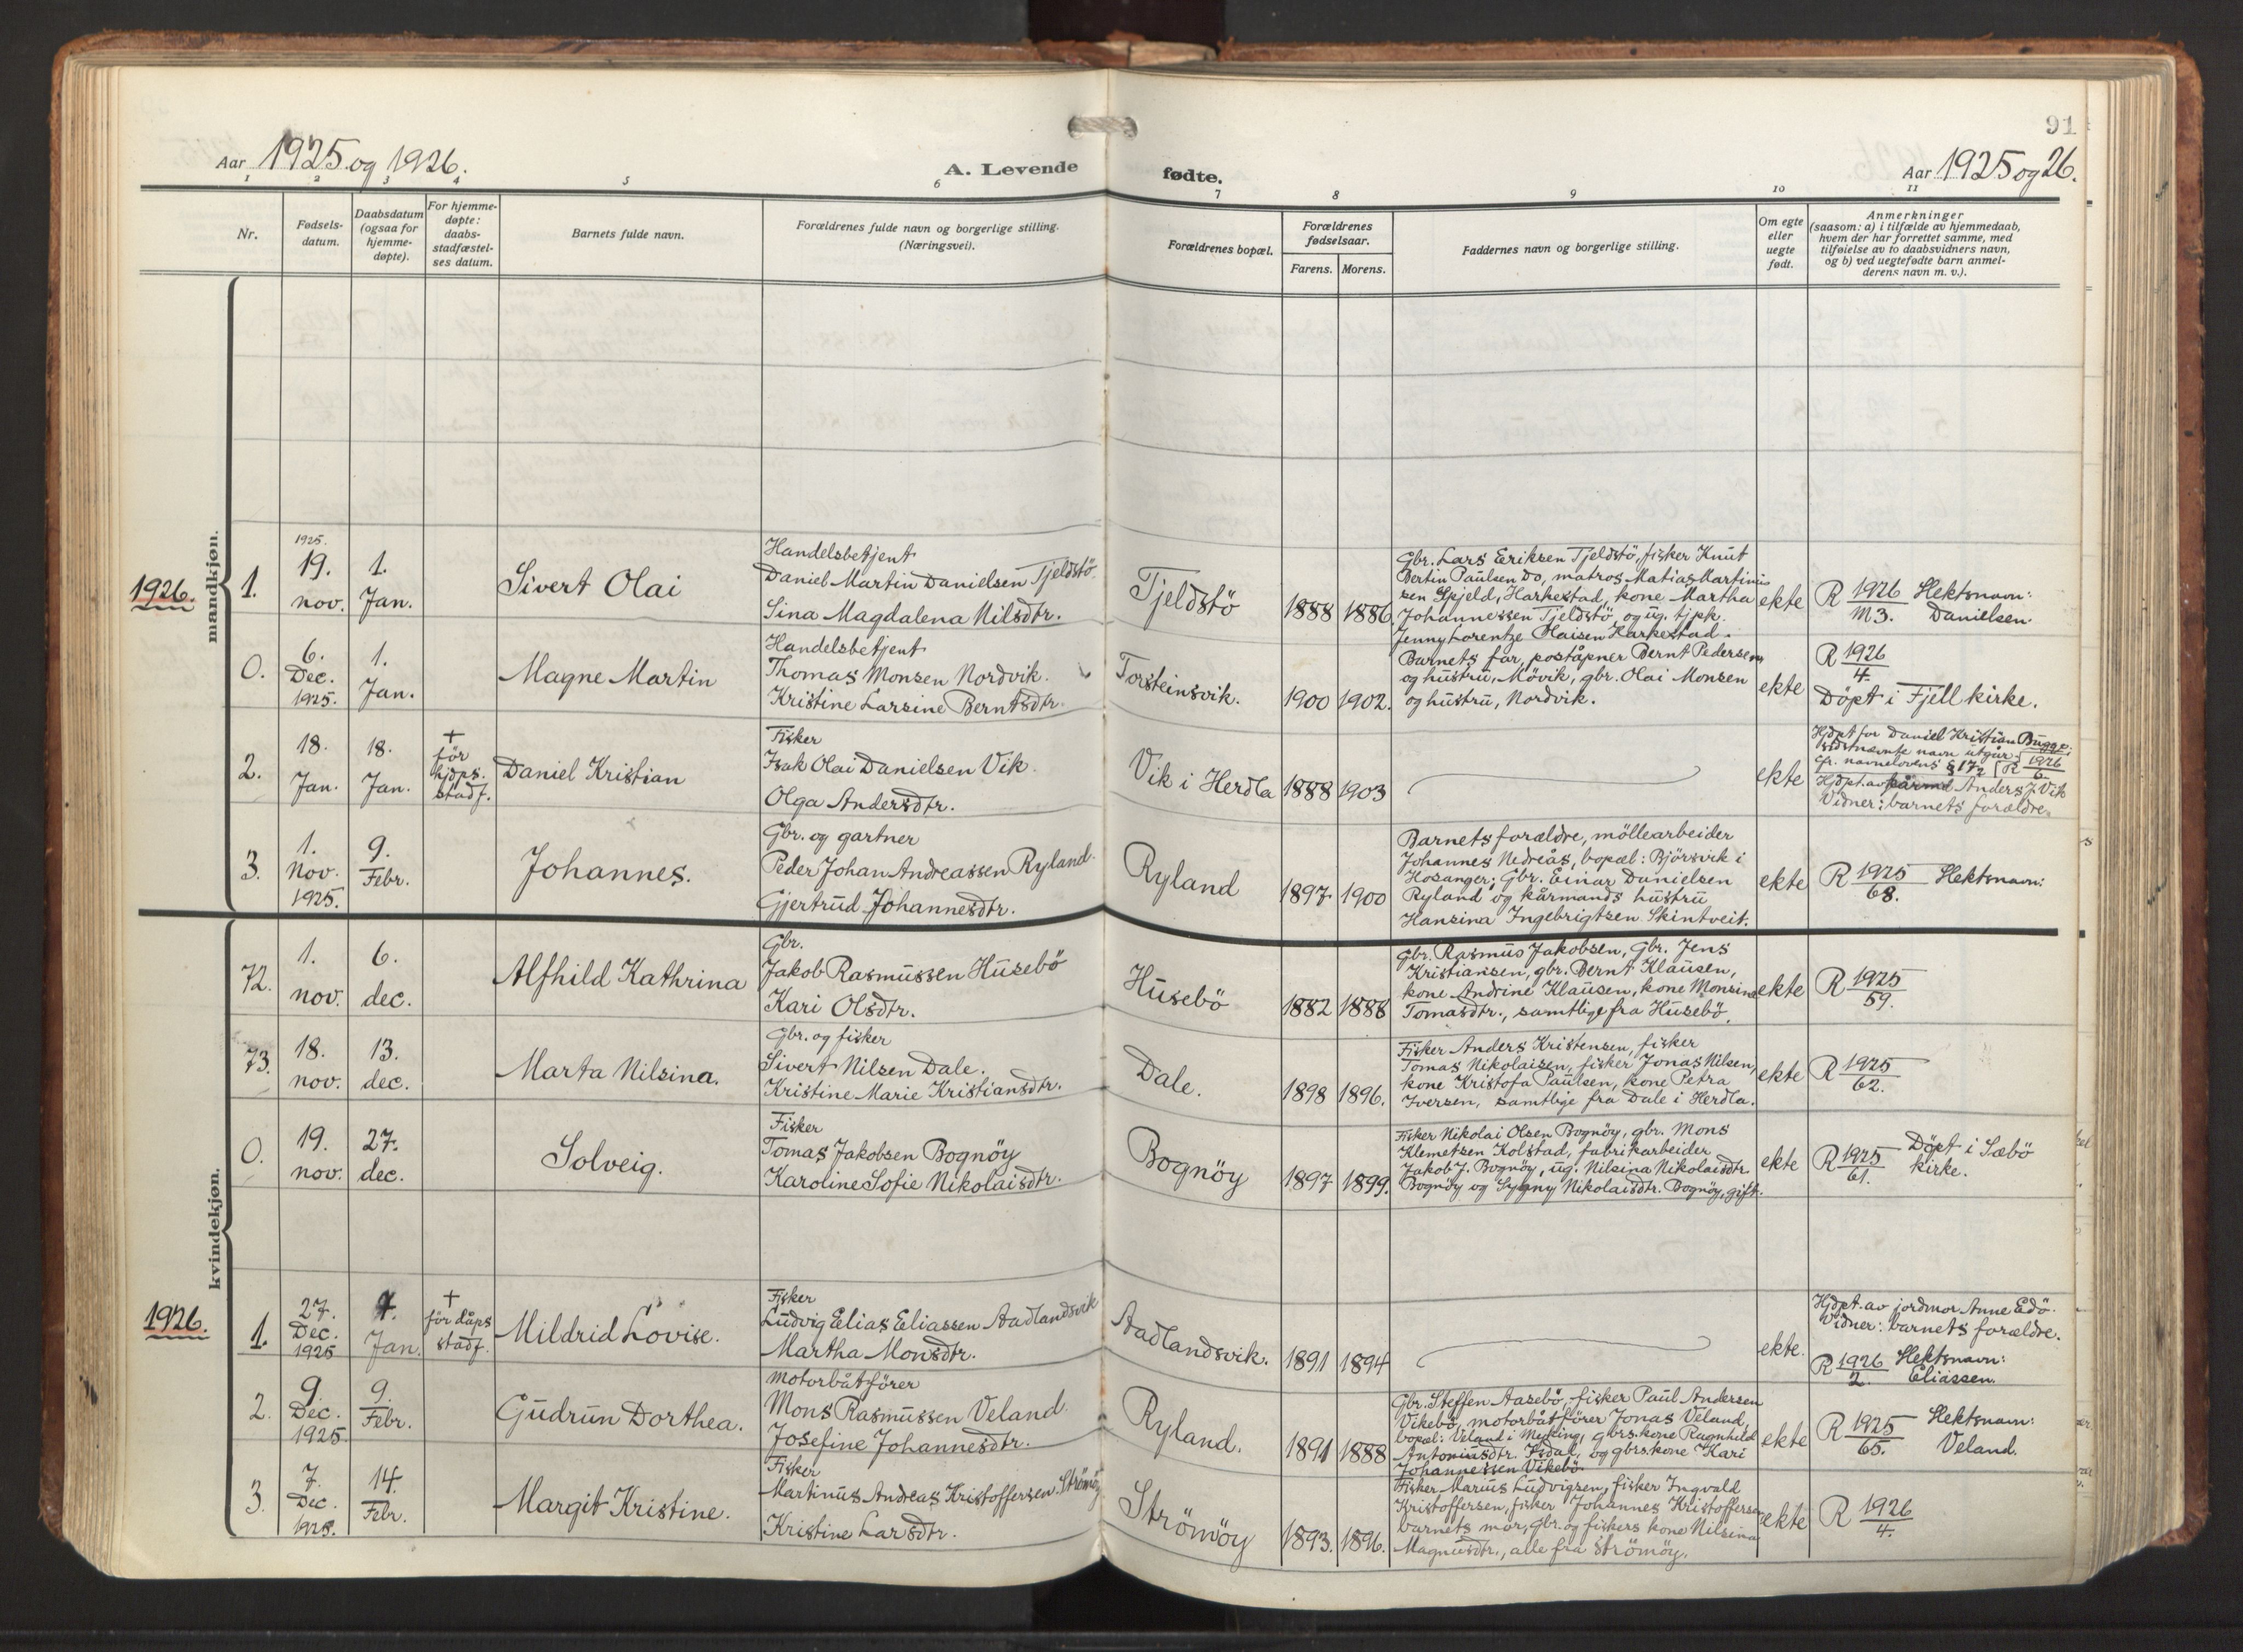 91
Aar 1925 og 1926.
A. Levende fødte.
Aar 1925 og 26.
1 2 3 4 5 6 7 8 9 10 11
Nr.
Fødsels-
datum.
Daabsdatum
(ogsaa for
hjemme-
døpte).
For hjemme-
døpte:
daabs-
stadfæstel-
ses datum.
Barnets fulde navn.
Forældrenes fulde navn og borgerlige stilling.
(Næringsvei).
Forældrenes bopæl.
Forældrenes
fødselsaar.
Farens. Morens.
Faddernes navn og borgerlige stilling.
Om egte
eller
uegte
født.
Anmerkninger
(saasom: a) i tilfælde av hjemmedaab,
hvem der har forrettet samme, med
tilføielse av to daabsvidners navn,
og b) ved uegtefødte barn anmel-
derens navn m. v.).
mandkjøn.
1926.
1.
1925.
19.
nov.
1.
Jan.
Sivert Olai
Handelsbetjent
Daniel Martin Danielsen Tjeldstö.
Sina Magdalena Nilsdtr.
Tjeldstö
1888 1886.
Gbr. Lars Eriksen Tjeldstö, fisker Knut
Bertin Paulsen Do, matros Matias Martinus
sen Spjeld, Harkestad, kone Martha
Johannessen Tjeldstö, og ug. tjpk.
Jenny Lorentze Olaisen Harkestad.
ekte
R 1926
M3.
Slektsnavn:
Danielsen.
0.
6.
Dec.
1925.
1.
Jan.
Magne Martin
Handelsbetjent
Thomas Monsen Nordvik.
Kristine Larsine Berntsdtr.
Torsteinsvik.
1900 1902.
Barnets far, poståpner Bernt Pedersen
og hustru, Mövik, gbr. Olai Monsen
og hustru, Nordvik.
ekte
R 1926
4.
Döpt i Fjell kirke.
2.
18.
Jan.
18.
Jan.
+
för
hjdps.
stadf.
Daniel Kristian
Fisker
Isak Olai Danielsen Vik.
Olga Andersdtr.
Vik i Herdla
1888 1903
ekte
Hjdpt for Daniel Kristian Bugge;
sidstnævnte navn utgår
cfr. navnelovens § 172 R 1926
6.
Hjdpt. av kårmd Anders J. Vik
Vidner: barnets forældre.
3.
1.
Nov.
1925.
9.
Febr.
Johannes.
Gbr. og gartner
Peder Johan Andreassen Ryland.
Gjertrud Johannesdtr.
Ryland
1897 1900
Barnets forældre, möllearbeider
Johannes Nedreås, bopæl: Bjørsvik i
Hosanger; Gbr. Einar Danielsen
Ryland og kårmands hustru
Hansina Ingebrigtsen Skintveit.
ekte
R 1925
68.
Slektsnavn:
kvindekjøn.
72.
1.
nov.
6.
dec.
Alfhild Kathrina
Gbr.
Jakob Rasmussen Husebö
Kari Olsdtr.
Husebö
1882 1888
Gbr. Rasmus Jakobsen, Gbr. Jens
Kristiansen, gbr. Bernt Klausen,
kone Andrine Klausen, kone Monsine
Tomasdtr., samtlige fra Husebö.
ekte
R 1925
59.
73.
18.
nov.
13.
dec.
Marta Nilsina.
Gbr. og fisker
Sivert Nilsen Dale.
Kristine Marie Kristiansdtr.
Dale.
1898 1896.
Fisker Anders Kristensen, fisker
Tomas Nikolaisen, fisker Jonas Nilsen,
kone Kristofa Paulsen, kone Petra
Iversen, samtlige fra Dale i Herdla.
ekte
R 1925
62.
0.
19.
nov.
27.
dec.
Solveig.
Fisker
Tomas Jakobsen Bognöy
Karoline Sofie Nikolaisdtr.
Bognöy
1897 1899.
Fisker Nikolai Olsen Bognöy, gbr. Mons
Klemetsen Kolstad, fabrikarbeider
Jakob J. Bognöy, ug. Nilsina Nikolaisdtr.
Bognöy og Sygny Nikolaisdtr. Bognöy, gift.
ekte
R 1925
61.
Döpt i Sæbö
kirke.
1926.
1.
27.
Dec.
1925
Jan.
+
för dåps
stadf.
Mildrid Lovise.
Fisker
Ludvig Elias Eliassen Aadlandsvik
Martha Monsdtr.
Aadlandsvik.
1891 1894
ekte.
Hjdpt. av jordmor Anne Edö.
Vidner: barnets forældre.
R 1926
2.
Slektsnavn:
Eliassen.
2.
9.
Dec.
1925.
9.
Febr.
Gudrun Dorthea.
Motorbåtförer
Mons Rasmussen Veland.
Josefine Johannesdtr.
Ryland.
1891 1888
Gbr. Steffen Aasebö, fisker Paul Andersen
Vikebö, motorbåtförer Jonas Veland,
bopæl: Veland i Meking, gbrs. kone Ragnhild
Antoniusdtr. Isdal, og gbrs. kone Kari
Johannessen Vikebö.
ekte
R 1925
65.
Slektsnavn:
Veland.
3.
7.
Dec.
1925.
14.
Febr.
Margit Kristine.
Fisker
Martinus Andreas Kristoffersen Strömöy
Kristine Larsdtr.
Strömöy
1893. 1896.
Fisker Marius Ludvigsen, fisker Ingvald
Kristoffersen, fisker Johannes Kristoffersen
barnets mor, gbr. og fiskers kone Nilsina
Magnusdtr., alle fra Strömöy.
ekte
R 1926
4.